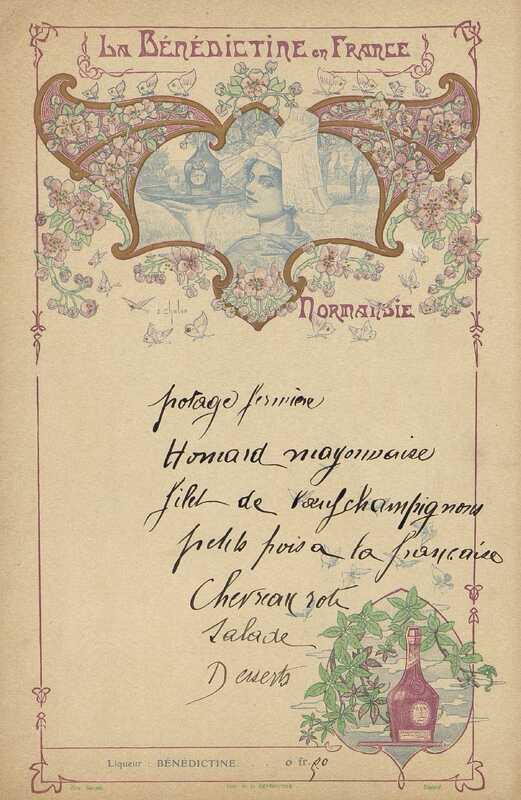 La Bénédictine en France
Normandie
potage fermière
Homard mayonnaise
filet de bœuf champignons
petits pois a la française
Chevreau roti
Salade
Desserts
Liqueur : BÉNÉDICTINE . . . 0 fr. 90